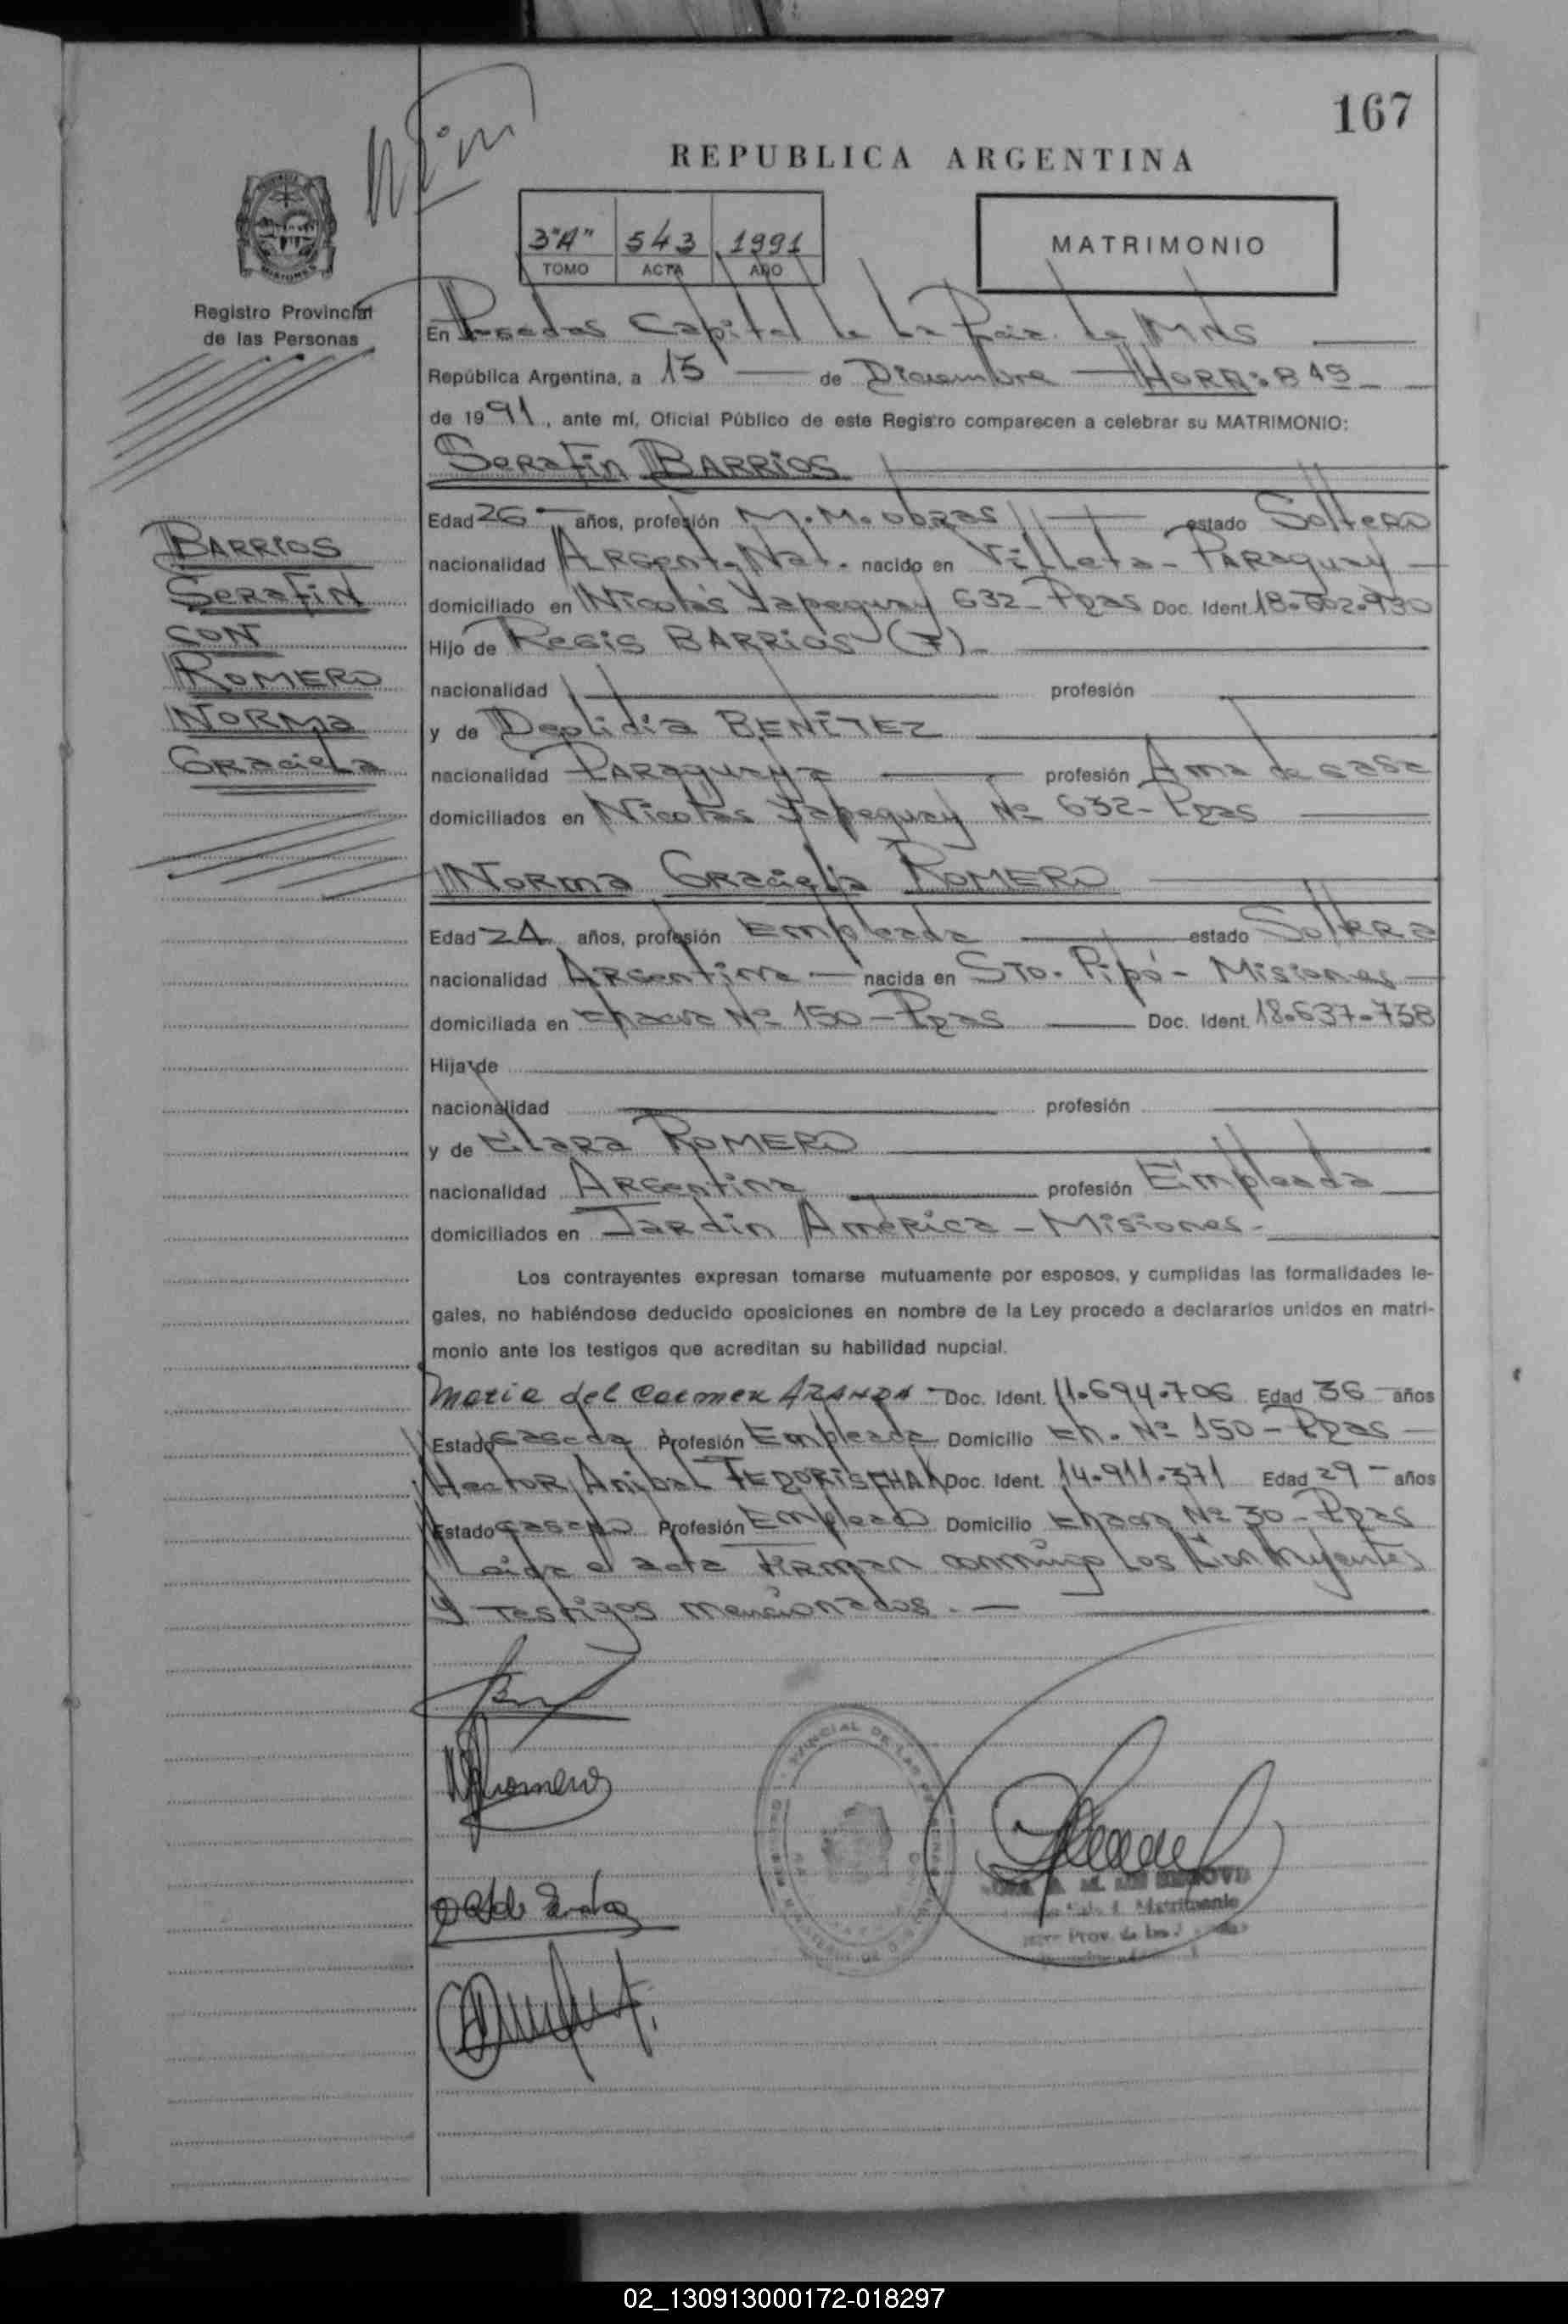 167
REPUBLICA ARGENTINA
3"A" 543 1991
TOMO ACTA AÑO
MATRIMONIO
Registro Provincial
de las Personas
BARRIOS
Serafin
con
ROMERO
NORMA
Graciela
En Posadas Capital de La Pcia. de Mnes
República Argentina, a 13 de Diciembre HORA: 8 45
de 1991, ante mí, Oficial Público de este Registro comparecen a celebrar su MATRIMONIO:
Serafin BARRIOS
Edad 26 años, profesión M.M. obras estado Soltero
nacionalidad Argent. Nat. nacido en Villeta - Paraguay
domiciliado en Nicolás Yapeguay 632 - Pdas Doc. Ident.
Hijo de Regis BARRIOS (F)
nacionalidad profesión
y de Deolidia BENITEZ
nacionalidad Paraguaya profesión Ama de casa
domiciliados en Nicolas Yapeguay Nº 632 - Pdas
Norma Graciela ROMERO
Edad 24 años, profesión Empleada estado Soltera
nacionalidad Argentina nacida en Sto. Pipó - Misiones
domiciliada en Chacra Nº 150 - Pdas Doc. Ident. 18.637.738
Hija de
nacionalidad profesión
y de Clara ROMERO
nacionalidad Argentina profesión Empleada
domiciliados en Jardin América - Misiones -
Los contrayentes expresan tomarse mutuamente por esposos, y cumplidas las formalidades le-
gales, no habiéndose deducido oposiciones en nombre de la Ley procedo a declararlos unidos en matri-
monio ante los testigos que acreditan su habilidad nupcial.
Maria del Carmen ARANDA Doc. Ident. 11.694.706 Edad 36 años
Estado casada Profesión Empleada Domicilio Ch. Nº 150 - Pdas
Hector Anibal Doc. Ident. 14.911.371 Edad 29 años
Estado casado Profesión Empleado Domicilio Chacra Nº 30 - Pdas
Leida el acta firman conmigo los Contrayentes
y testigos mencionados. -
Romero
02_130913000172-018297